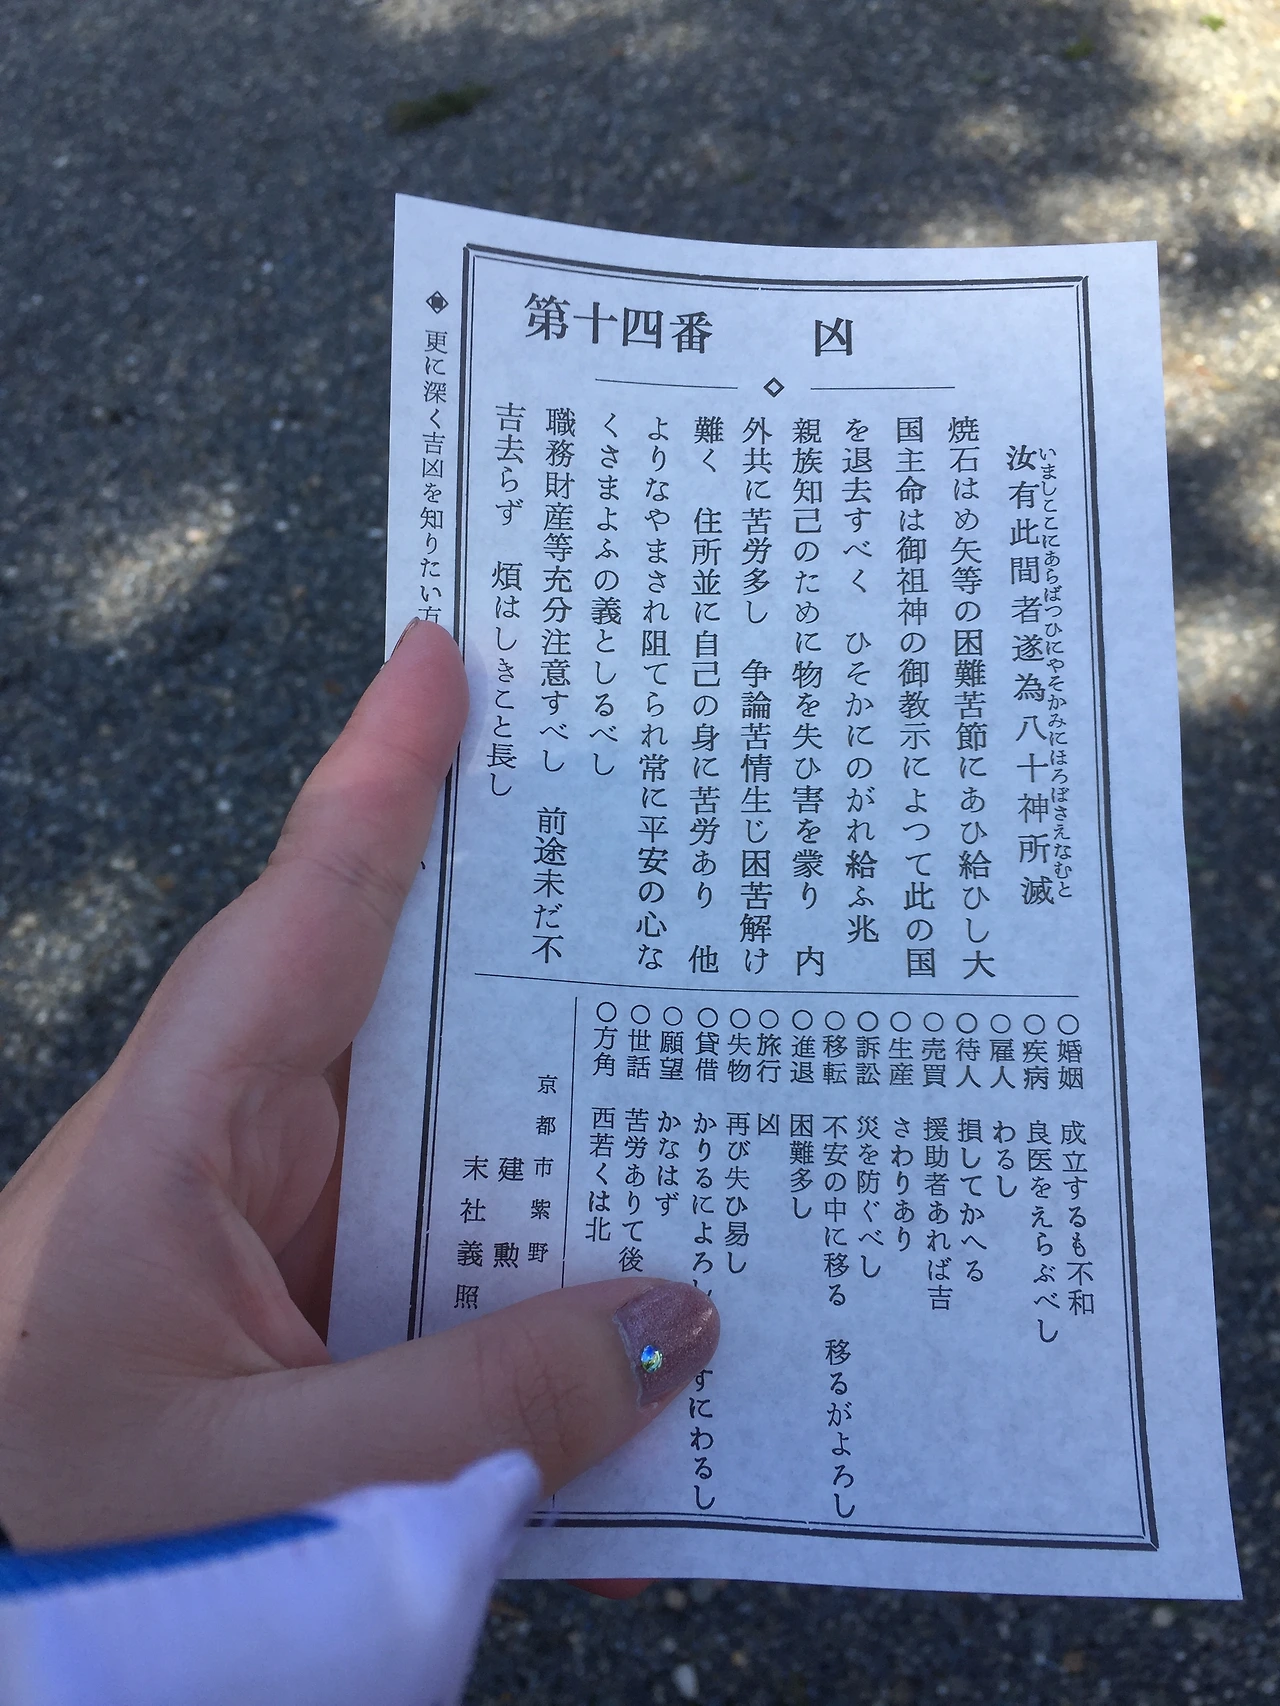 第十四番　凶
いましここにあらばつひにやそかみにほろぼさえなむと
汝有此間者遂為八十神所滅
焼石はめ矢等の困難苦節にあひ給ひし大
国主命は御祖神の御教示によつて此の国
を退去すべく　ひそかにのがれ給ふ兆
親族知己のために物を失ひ害を蒙り　内
外共に苦労多し　争論苦情生じ困苦解け
難く　住所並に自己の身に苦労あり　他
よりなやまされ阻てられ常に平安の心な
くさまよふの義としるべし
職務財産等充分注意すべし　前途未だ不
吉去らず　煩はしきこと長し
○婚姻　成立するも不和
○疾病　良医をえらぶべし
○雇人　わるし
○待人　損してかへる
○売買　援助者あれば吉
○生産　さわりあり
○訴訟　災を防ぐべし
○移転　不安の中に移る　移るがよろし
○進退　困難多し
○旅行　凶
○失物　再び失ひ易し
○貸借　かりるによろし　すにわるし
○願望　かなはず
○世話　苦労ありて後
○方角　西若くは北
京都市紫野
建勲
末社義照
更に深く吉凶を知りたい方